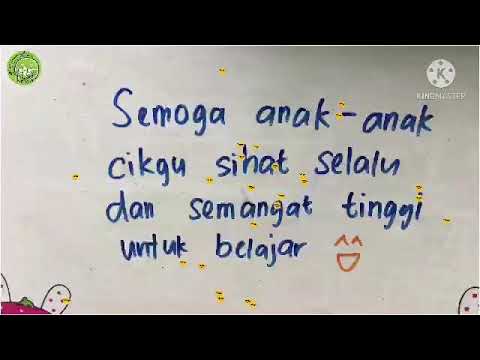 KINEMASTER
Semoga anak-anak
cikgu sihat selalu
dan semangat tinggi
untuk belajar